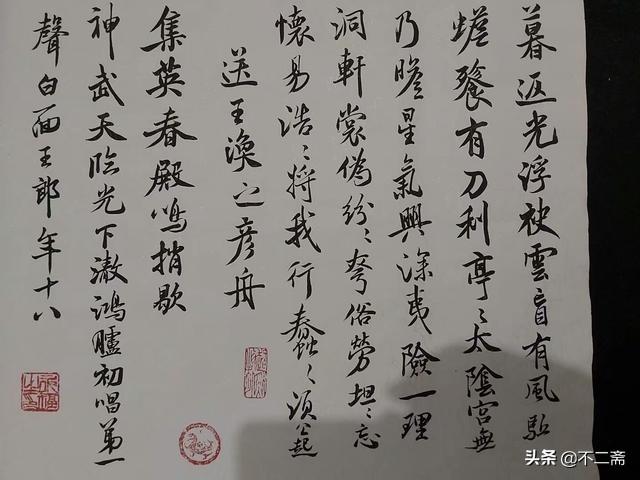 暮返光浮袂雲盲有風駈
蟾餮有刀利亭〻太陰宮無
乃瞻星氣興深夷險一理
洞軒裳偽紛〻夸俗勞坦〻忘
懷易浩〻將我行蠢〻須公起
送王渙之彥舟
集英春殿鳴捎歇
神武天臨光下澈鴻臚初唱第一
聲白面王郎年十八
头条 @不二斋